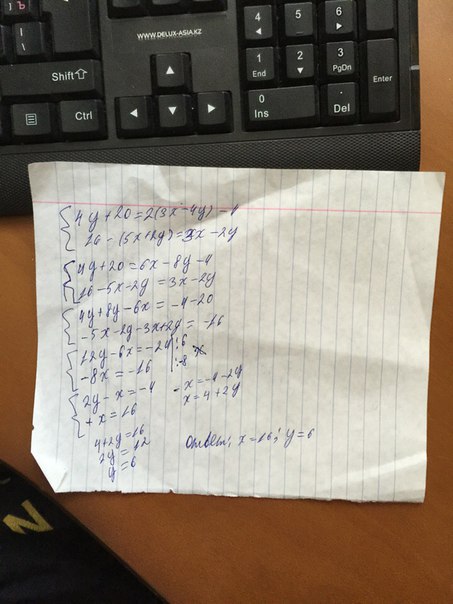 Ы
\
4
5
6
WWW.DELUX-ASIA.KZ
Shift
1 End
2
3 PgDn
Enter
Ctrl
0 Ins
. Del
4y+20=2(3x-4y)-4
16-(5x+2y)=3x-2y
4y+20=6x-8y-4
16-5x-2y=3x-2y
4y+8y-6x=-4-20
-5x-2y-3x+2y=-16
12y-6x=-24 |:6
-8x=-16 |:-8
2y-x=-4
+x=16
-x=-4-2y
x=4+2y
4+2y=16
2y=12
y=6
Ответ: x=16; y=6
N